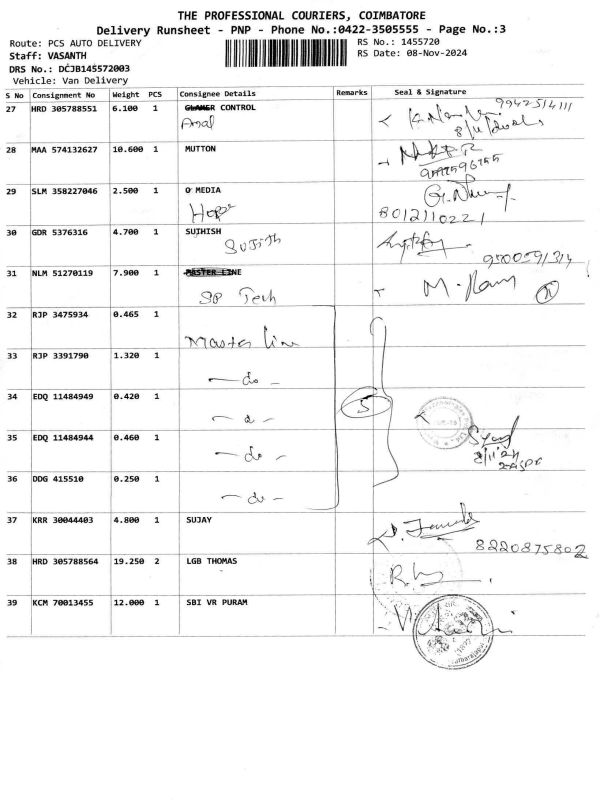 THE PROFESSIONAL COURIERS, COIMBATORE
Delivery Runsheet - PNP - Phone No.:0422-3505555 - Page No.:3
Route: PCS AUTO DELIVERY
RS No.: 1455720
Staff: VASANTH
RS Date: 08-Nov-2024
DRS No.: DCJB14S572003
Vehicle: Van Delivery
S No Consignment No Weight PCS Consignee Details Remarks Seal & Signature
27 HRD 305788551 6.100 1 CONTROL 9942514111
28 MAA 574132627 10.600 1 MUTTON
29 SLM 358227046 2.500 1 O MEDIA
8012110221
30 GDR 5376316 4.700 1 SUTHISH
Sujith
31 NLM 51270119 7.900 1 MASTER LINE
SP Tech M.
32 RJP 3475934 0.465 1
Master line
33 RJP 3391790 1.320 1
- do -
34 EDQ 11484949 0.420 1 5
35 EDQ 11484944 0.460 1
- do -
36 DDG 415510 0.250 1
- do -
37 KRR 30044403 4.800 1 SUJAY
8220875802
38 HRD 305788564 19.250 2 LGB THOMAS
39 KCM 70013455 12.000 1 SBI VR PURAM